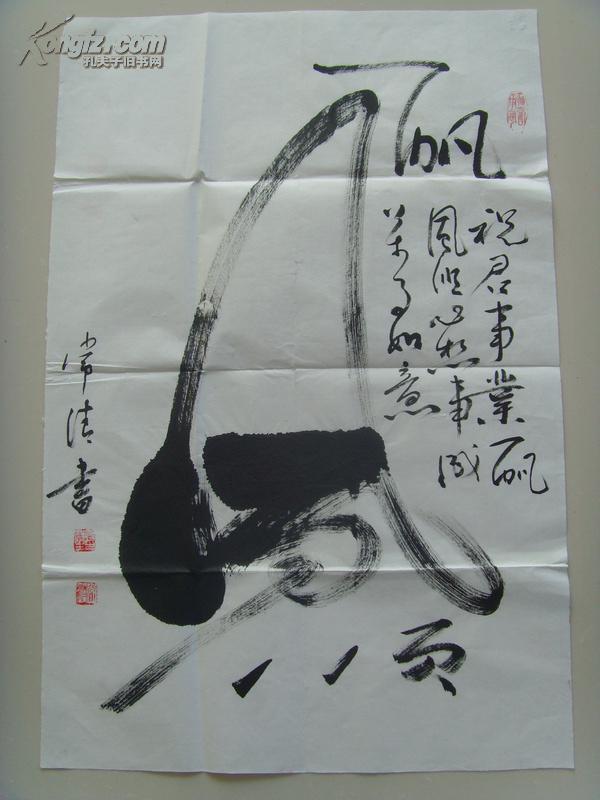 Kongfz.com
孔夫子旧书网
一帆
风
顺
祝君事業一帆
風順心想事成
萬事如意
常清書